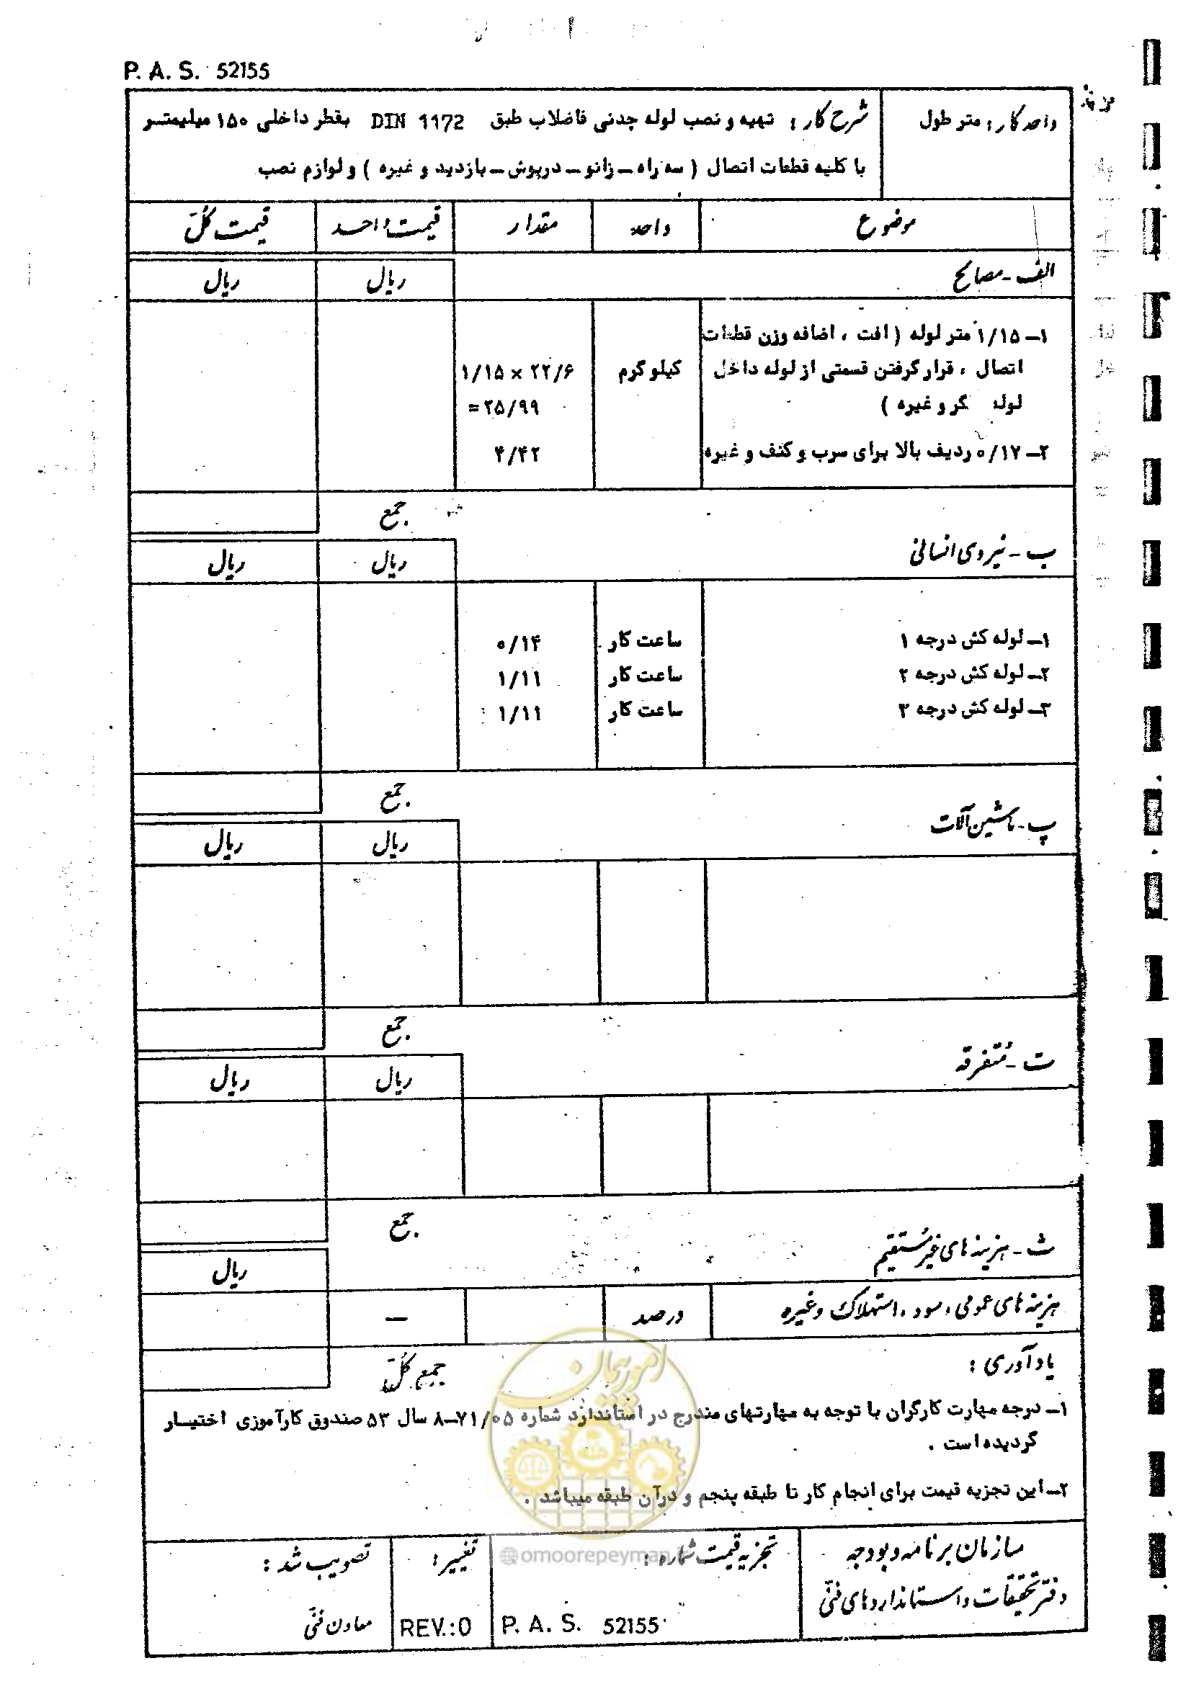 P. A. S. 52155
واحد کار : متر طول
شرح کار : تهیه و نصب لوله چدنی فاضلاب طبق DIN 1172 بقطر داخلی ۱۵۰ میلیمتر
با کلیه قطعات اتصال ( سه راه ـ زانو ـ درپوش ـ بازدید و غیره ) و لوازم نصب
موضوع واحد مقدار قیمت واحد قیمت کل
الف - مصالح ریال ریال
۱ـ ۱/۱۵ متر لوله ( افت ، اضافه وزن قطعات
اتصال ، قرار گرفتن قسمتی از لوله داخل کیلوگرم ۱/۱۵ × ۲۲/۶
لوله گر و غیره ) = ۲۵/۹۹
۲ـ ۰/۱۷ ردیف بالا برای سرب و کنف و غیره ۴/۴۲
جمع
ب - نیروی انسانی ریال ریال
۱ـ لوله کش درجه ۱ ساعت کار ۰/۱۴
۲ـ لوله کش درجه ۲ ساعت کار ۱/۱۱
۳ـ لوله کش درجه ۳ ساعت کار ۱/۱۱
جمع
پ - ماشین آلات ریال ریال
جمع
ت - متفرقه ریال ریال
جمع
ث - هزینه های غیر مستقیم ریال
هزینه های عمومی ، سود ، استهلاک و غیره درصد —
یادآوری : جمع کل
۱ـ درجه مهارت کارگران با توجه به مهارتهای مندرج در استاندارد شماره ۷۱/۰۵ـ۸ سال ۵۳ صندوق کارآموزی اختیار
گردیده است .
۲ـ این تجزیه قیمت برای انجام کار تا طبقه پنجم و در آن طبقه میباشد .
امور پیمان
@omoorepeyman
سازمان برنامه و بودجه
دفتر تحقیقات و استانداردهای فنی
تجزیه قیمت شماره :
P. A. S. 52155
تغییر :
REV.:0
تصویب شد :
معاون فنی